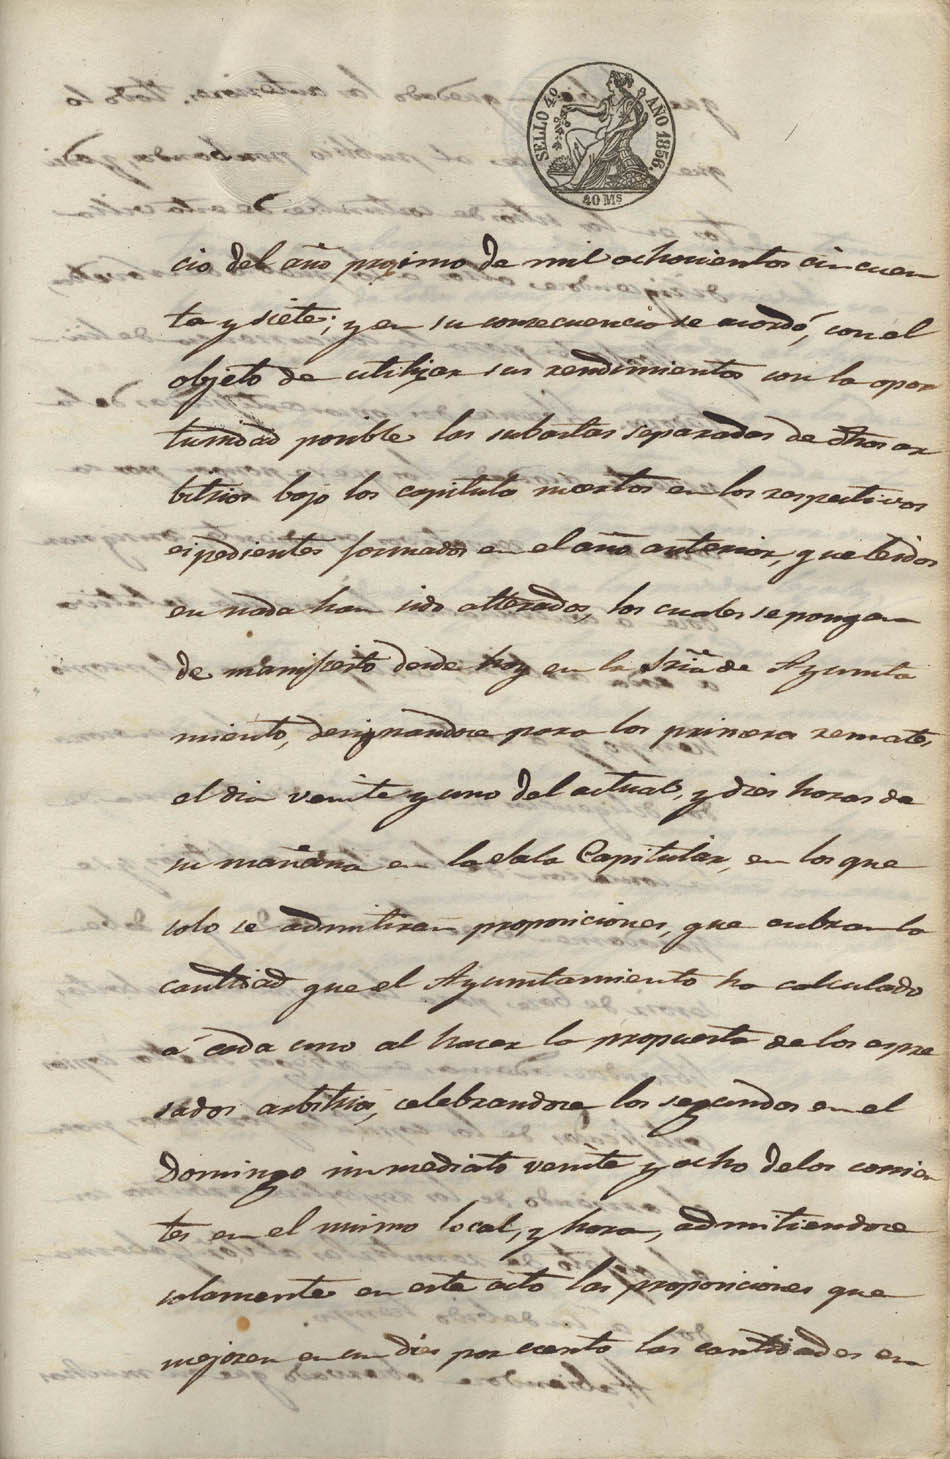 SELLO 4º AÑO 1856.
40 Ms
cio del año proximo de mil ochocientos cincuen
ta y siete; y en su consecuencia se acordó, con el
objeto de utilizar sus rendimientos con la opor
tunidad posible las subastas separadas de dhos ar
bitrios bajo los capitulo insertos en los respectivos
espedientes formados en el año anterior, que leidos
en nada han sido alterados, los cuales se pongan
de manifiesto desde hoy en la Sria de Ayunta
miento, designandose para los primera remates,
el dia veinte y uno del actual, y diez horas de
su mañana en la Sala Capitular, en los que
solo se admitiran proposiciones, que cubran la
cantidad que el Ayuntamiento ha calculado
á cada uno al hacer la propuesta de los espre
sados arbitrios, celebrandose los segundos en el
Domingo inmediato veinte y ocho de los corrien
tes en el mismo local, y hora, admitiendose
solamente en este acto las proposiciones que
mejoren en un diez por ciento las cantidades en